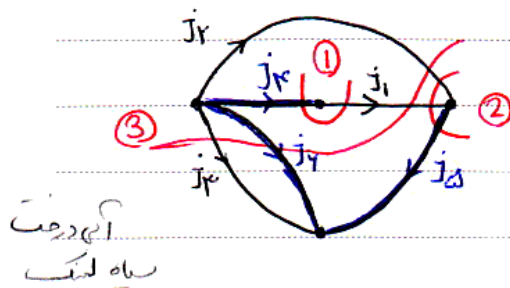 j۲
j۴ ① j۱
③ ②
j۳ j۶ j۵
آبی درخت
سیاه لینک